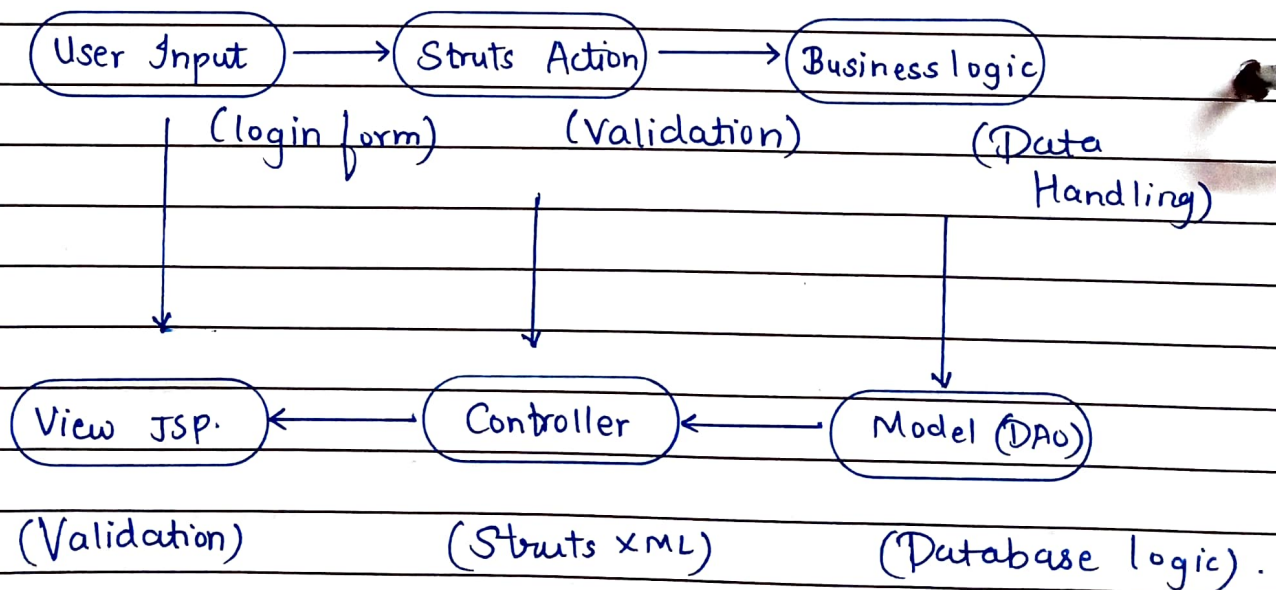 User Input Struts Action Business logic
(login form) (Validation) (Data
Handling)
View JSP. Controller Model (DAO)
(Validation) (Struts XML) (Database logic).